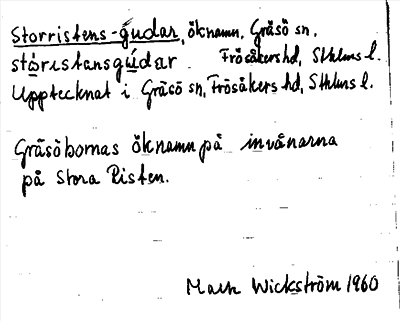 Storristens-gudar, öknamn, Gräsö sn,
stóristansgúdar Frösåkers hd, Sthlms l.
Upptecknat i Gräsö sn, Frösåkers hd, Sthlms l.
Gräsöbornas öknamn på invånarna
på Stora Risten.
Wickström 1960